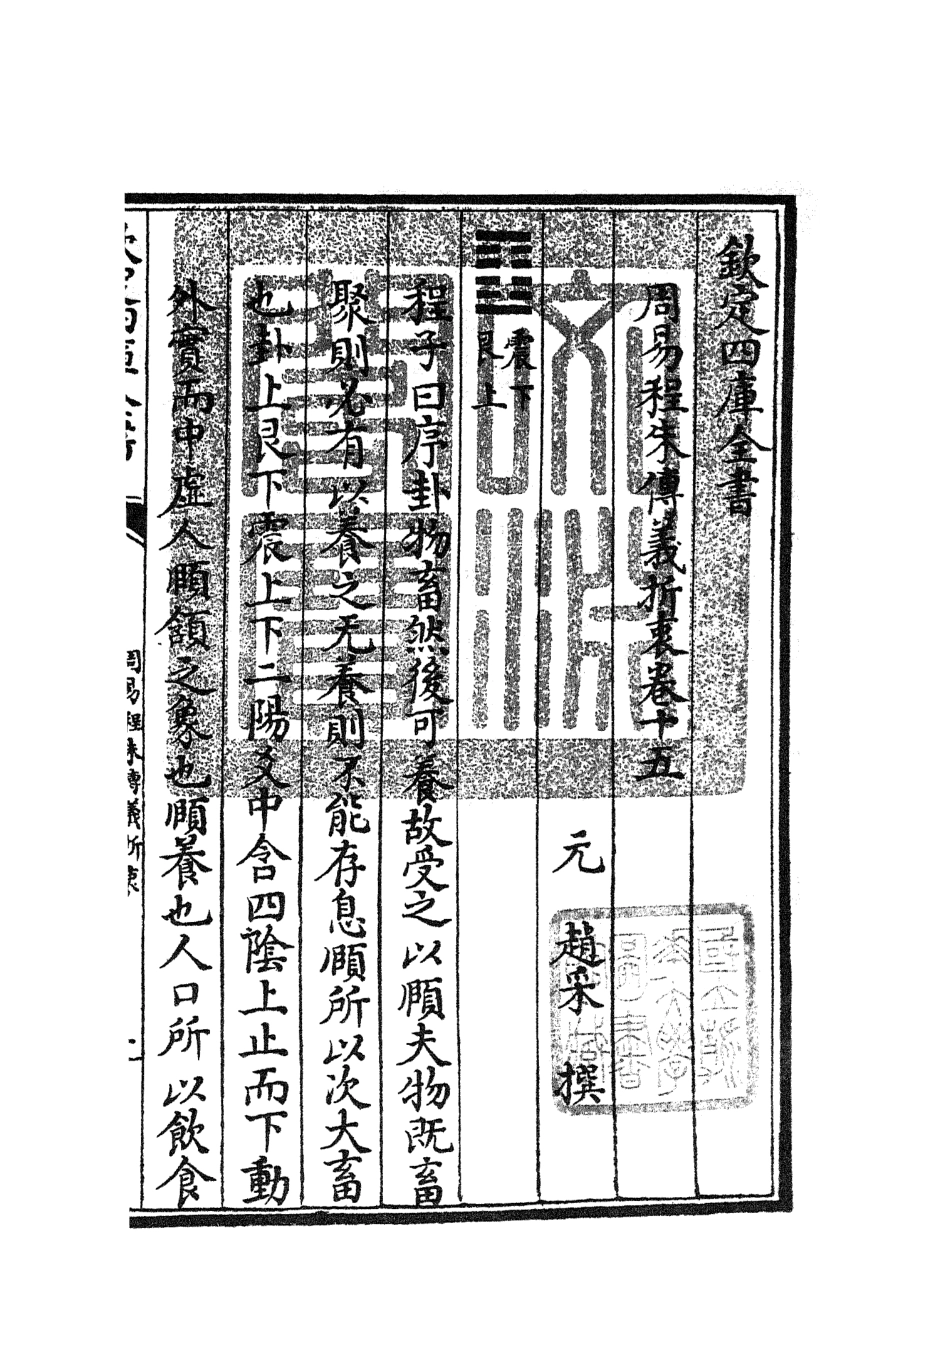 欽定四庫全書
周易程朱傳義折衷卷十五
元 趙采 撰
震下
艮上
程子曰序卦物畜然後可養故受之以頤夫物既畜
聚則必有以養之无養則不能存息頤所以次大畜
也卦上艮下震上下二陽爻中含四陰上止而下動
外實而中虛人頤頷之象也頤養也人口所以飲食
周易程朱傳義折衷